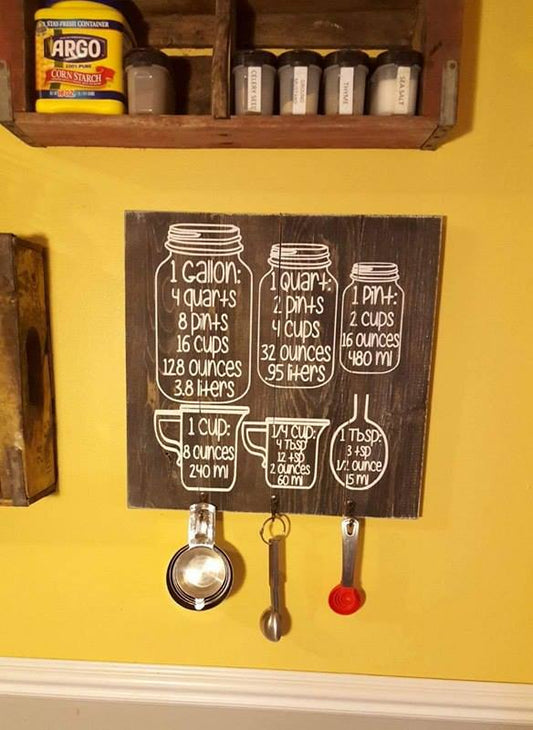 STAY-FRESH CONTAINER
ARGO
100% PURE
CORN STARCH
CELERY SEED
GROUND
THYME
SEA SALT
1 Gallon:
4 quarts
8 pints
16 cups
128 ounces
3.8 liters
1 Quart:
2 pints
4 cups
32 ounces
95 liters
1 Pint:
2 cups
16 ounces
480 ml
1 cup:
8 ounces
240 ml
1/4 cup:
4 Tbsp
12 tsp
2 ounces
60 ml
1 Tbsp:
3 tsp
1/2 ounce
15 ml